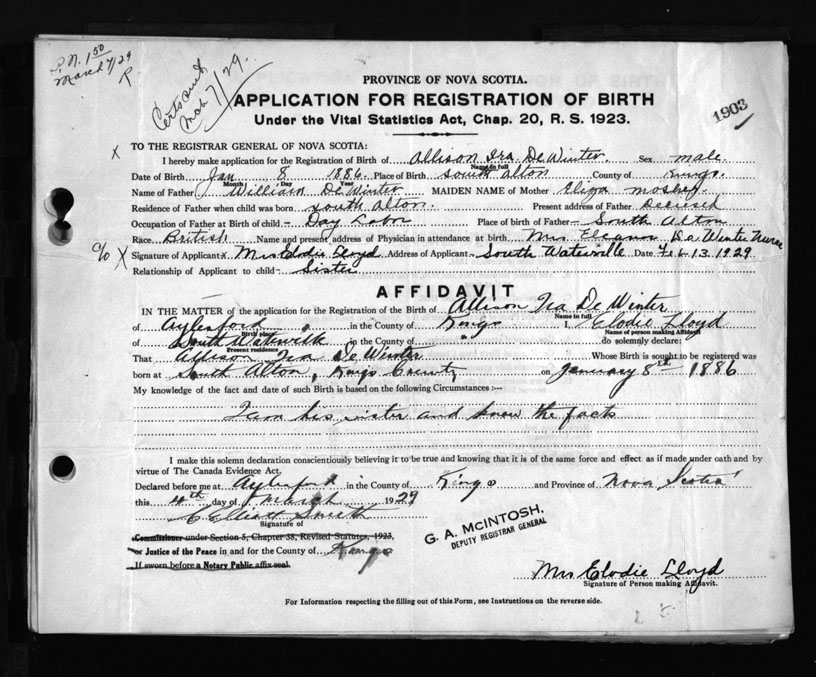 P.N. 1.50
March 7/29
R
Certs and
Mch 7/29.
1903
PROVINCE OF NOVA SCOTIA.
APPLICATION FOR REGISTRATION OF BIRTH
Under the Vital Statistics Act, Chap. 20, R. S. 1923.
X TO THE REGISTRAR GENERAL OF NOVA SCOTIA:
I hereby make application for the Registration of Birth of Allison Ira De Winter. Sex male
Name in full
Date of Birth Jan 8 1886. Place of Birth South Alton County of Kings.
Month Day Year
Name of Father William De Winter MAIDEN NAME of Mother Eliza
Residence of Father when child was born South Alton. Present address of Father Deceised
Occupation of Father at Birth of child - Day Labor Place of birth of Father - South Alton
Race. British Name and present address of Physician in attendance at birth Mrs De Winter Nurse
c/o X Signature of Applicant x Mrs Elodie Lloyd Address of Applicant - South Waterville Date Feb 13. 1929
Relationship of Applicant to child - Sister
AFFIDAVIT
IN THE MATTER of the application for the Registration of the Birth of Allison Ira De Winter
Name in full
of Aylesford in the County of Kings I, Elodie Lloyd
Birth place
Name of person making Affidavit
of South Waterville in the County of " do solemnly declare:
Present residence
That Allison Ira De Winter Whose Birth is sought to be registered was
born at South Alton, Kings County on January 8th 1886
My knowledge of the fact and date of such Birth is based on the following Circumstances :—
I am his sister and know the facts
I make this solemn declaration conscientiously believing it to be true and knowing that it is of the same force and effect as if made under oath and by
virtue of The Canada Evidence Act.
Declared before me at Aylesford in the County of Kings and Province of Nova Scotia
this 4th day of March 1929
C Elliott Smith
Signature of
Commissioner under Section 5, Chapter 38, Revised Statutes, 1923,
or Justice of the Peace in and for the County of Kings
If sworn before a Notary Public affix seal.
G. A. McINTOSH,
DEPUTY REGISTRAR GENERAL
Mrs Elodie Lloyd
Signature of Person making Affidavit.
For Information respecting the filling out of this Form, see Instructions on the reverse side.